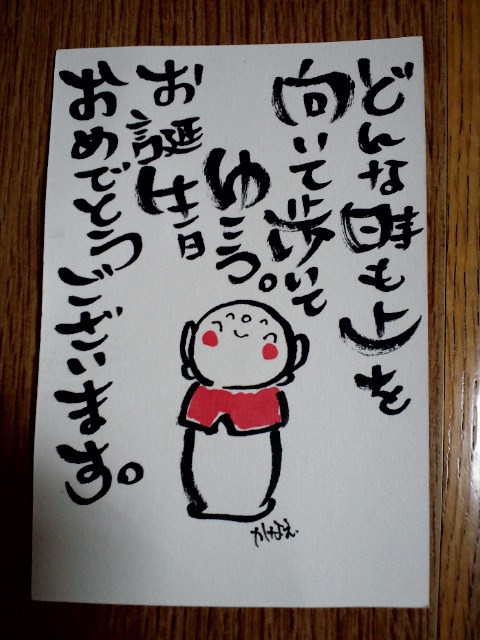 どんな時も上を
向いて歩いて
ゆこう。
お誕生日
おめでとうございます。
かなえ